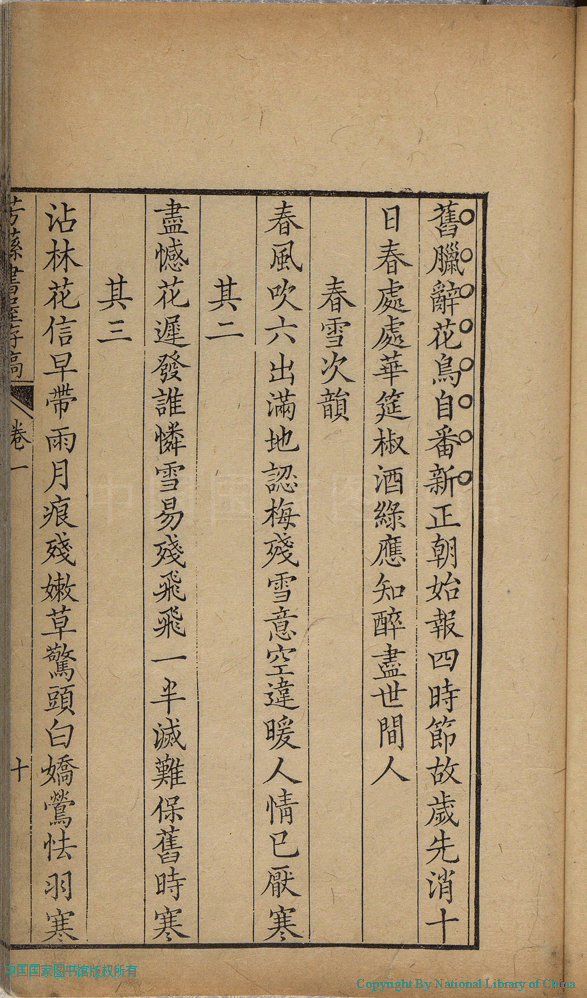 舊臘辭花鳥自番新正朝始報四時節故歲先消十
日春處處華筵椒酒綠應知醉盡世間人
春雪次韻
春風吹六出滿地認梅殘雪意空違暖人情已厭寒
其二
盡憾花遲發誰憐雪易殘飛飛一半滅難保舊時寒
其三
沾林花信早帶雨月痕殘嫩草驚頭白嬌鶯怯羽寒
書存稿 卷一 十
中国国家图书馆版权所有
Copyright By National Library of China